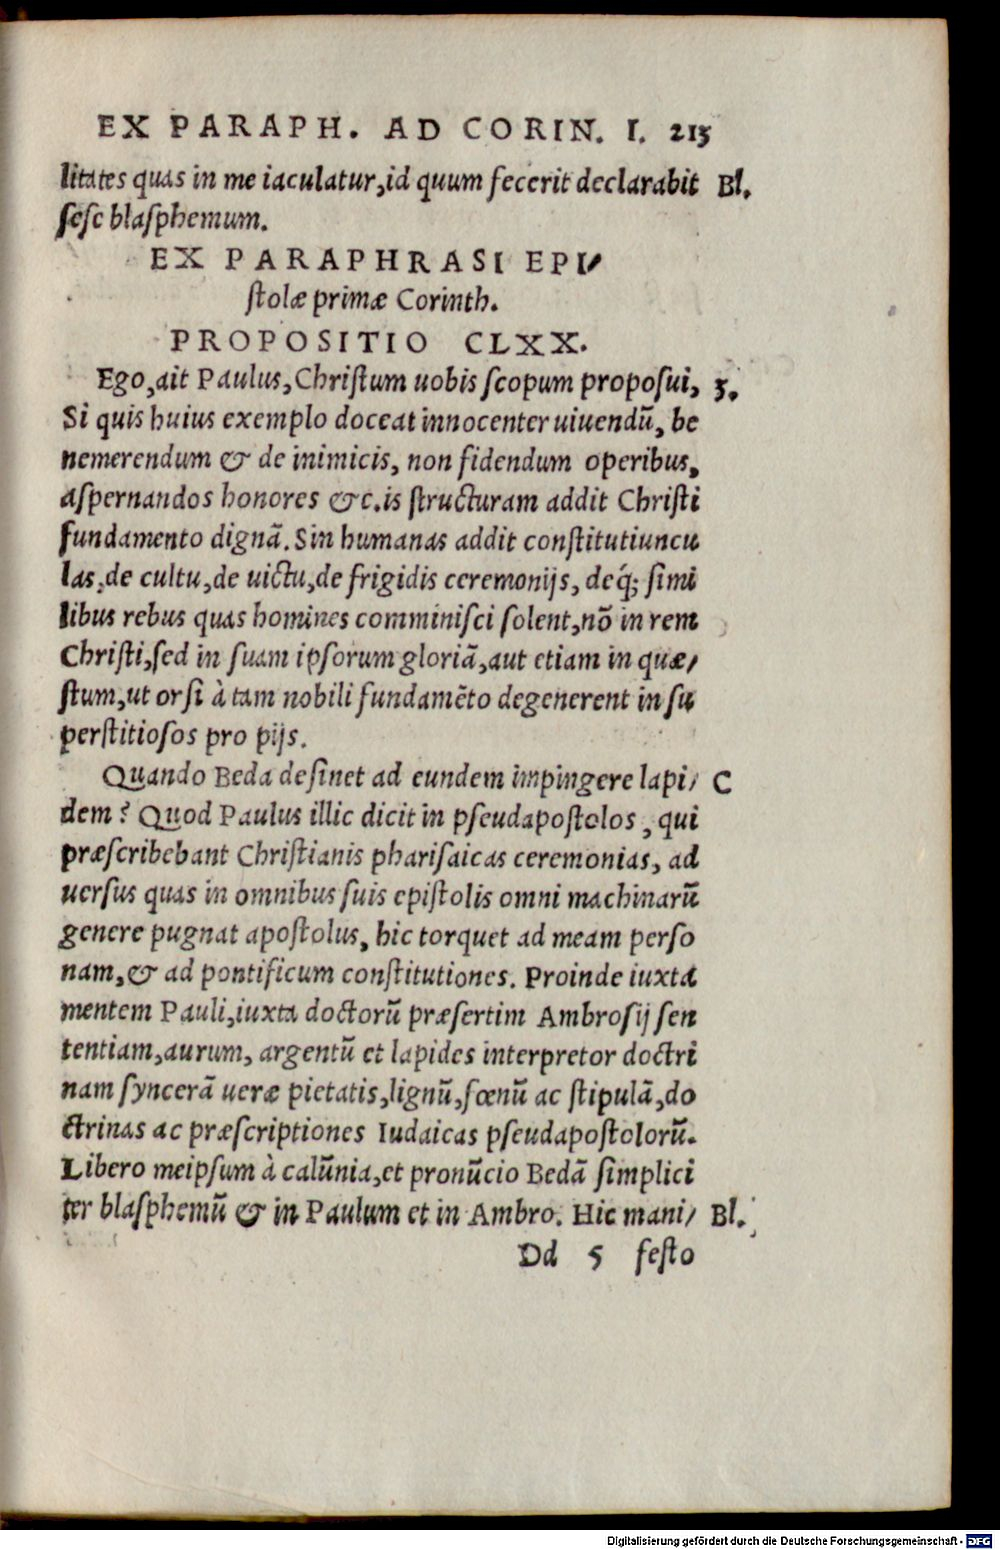 EX PARAPH. AD CORIN. I. 215
litates quas in me iaculatur,id quum fecerit declarabit Bl.
sese blasphemum.
EX PARAPHRASI EPI/
stolæ primæ Corinth.
PROPOSITIO CLXX.
Ego,ait Paulus,Christum uobis scopum proposui, 3.
Si quis huius exemplo doceat innocenter uiuendũ, be
nemerendum & de inimicis, non fidendum operibus,
aspernandos honores &c.is structuram addit Christi
fundamento dignã. Sin humanas addit constitutiuncu
las,de cultu,de uictu,de frigidis ceremonijs, deq́; simi
libus rebus quas homines comminisci solent,nõ in rem
Christi,sed in suam ipsorum gloriã,aut etiam in quæ/
stum,ut orsi à tam nobili fundamẽto degenerent in su
perstitiosos pro pijs.
Quando Beda desinet ad eundem impingere lapi/ C
dem? Quod Paulus illic dicit in pseudapostolos, qui
præscribebant Christianis pharisaicas ceremonias, ad
uersus quas in omnibus suis epistolis omni machinarũ
genere pugnat apostolus, hic torquet ad meam perso
nam,& ad pontificum constitutiones. Proinde iuxta
mentem Pauli,iuxta doctorũ præsertim Ambrosij sen
tentiam,aurum, argentũ et lapides interpretor doctri
nam syncerã ueræ pietatis,lignũ,fœnũ ac stipulã,do
ctrinas ac præscriptiones Iudaicas pseudapostolorũ.
Libero meipsum à calũnia,et pronũcio Bedã simplici
ter blasphemũ & in Paulum et in Ambro. Hic mani/ Bl.
Dd 5 festo
Digitalisierung gefördert durch die Deutsche Forschungsgemeinschaft - DFG